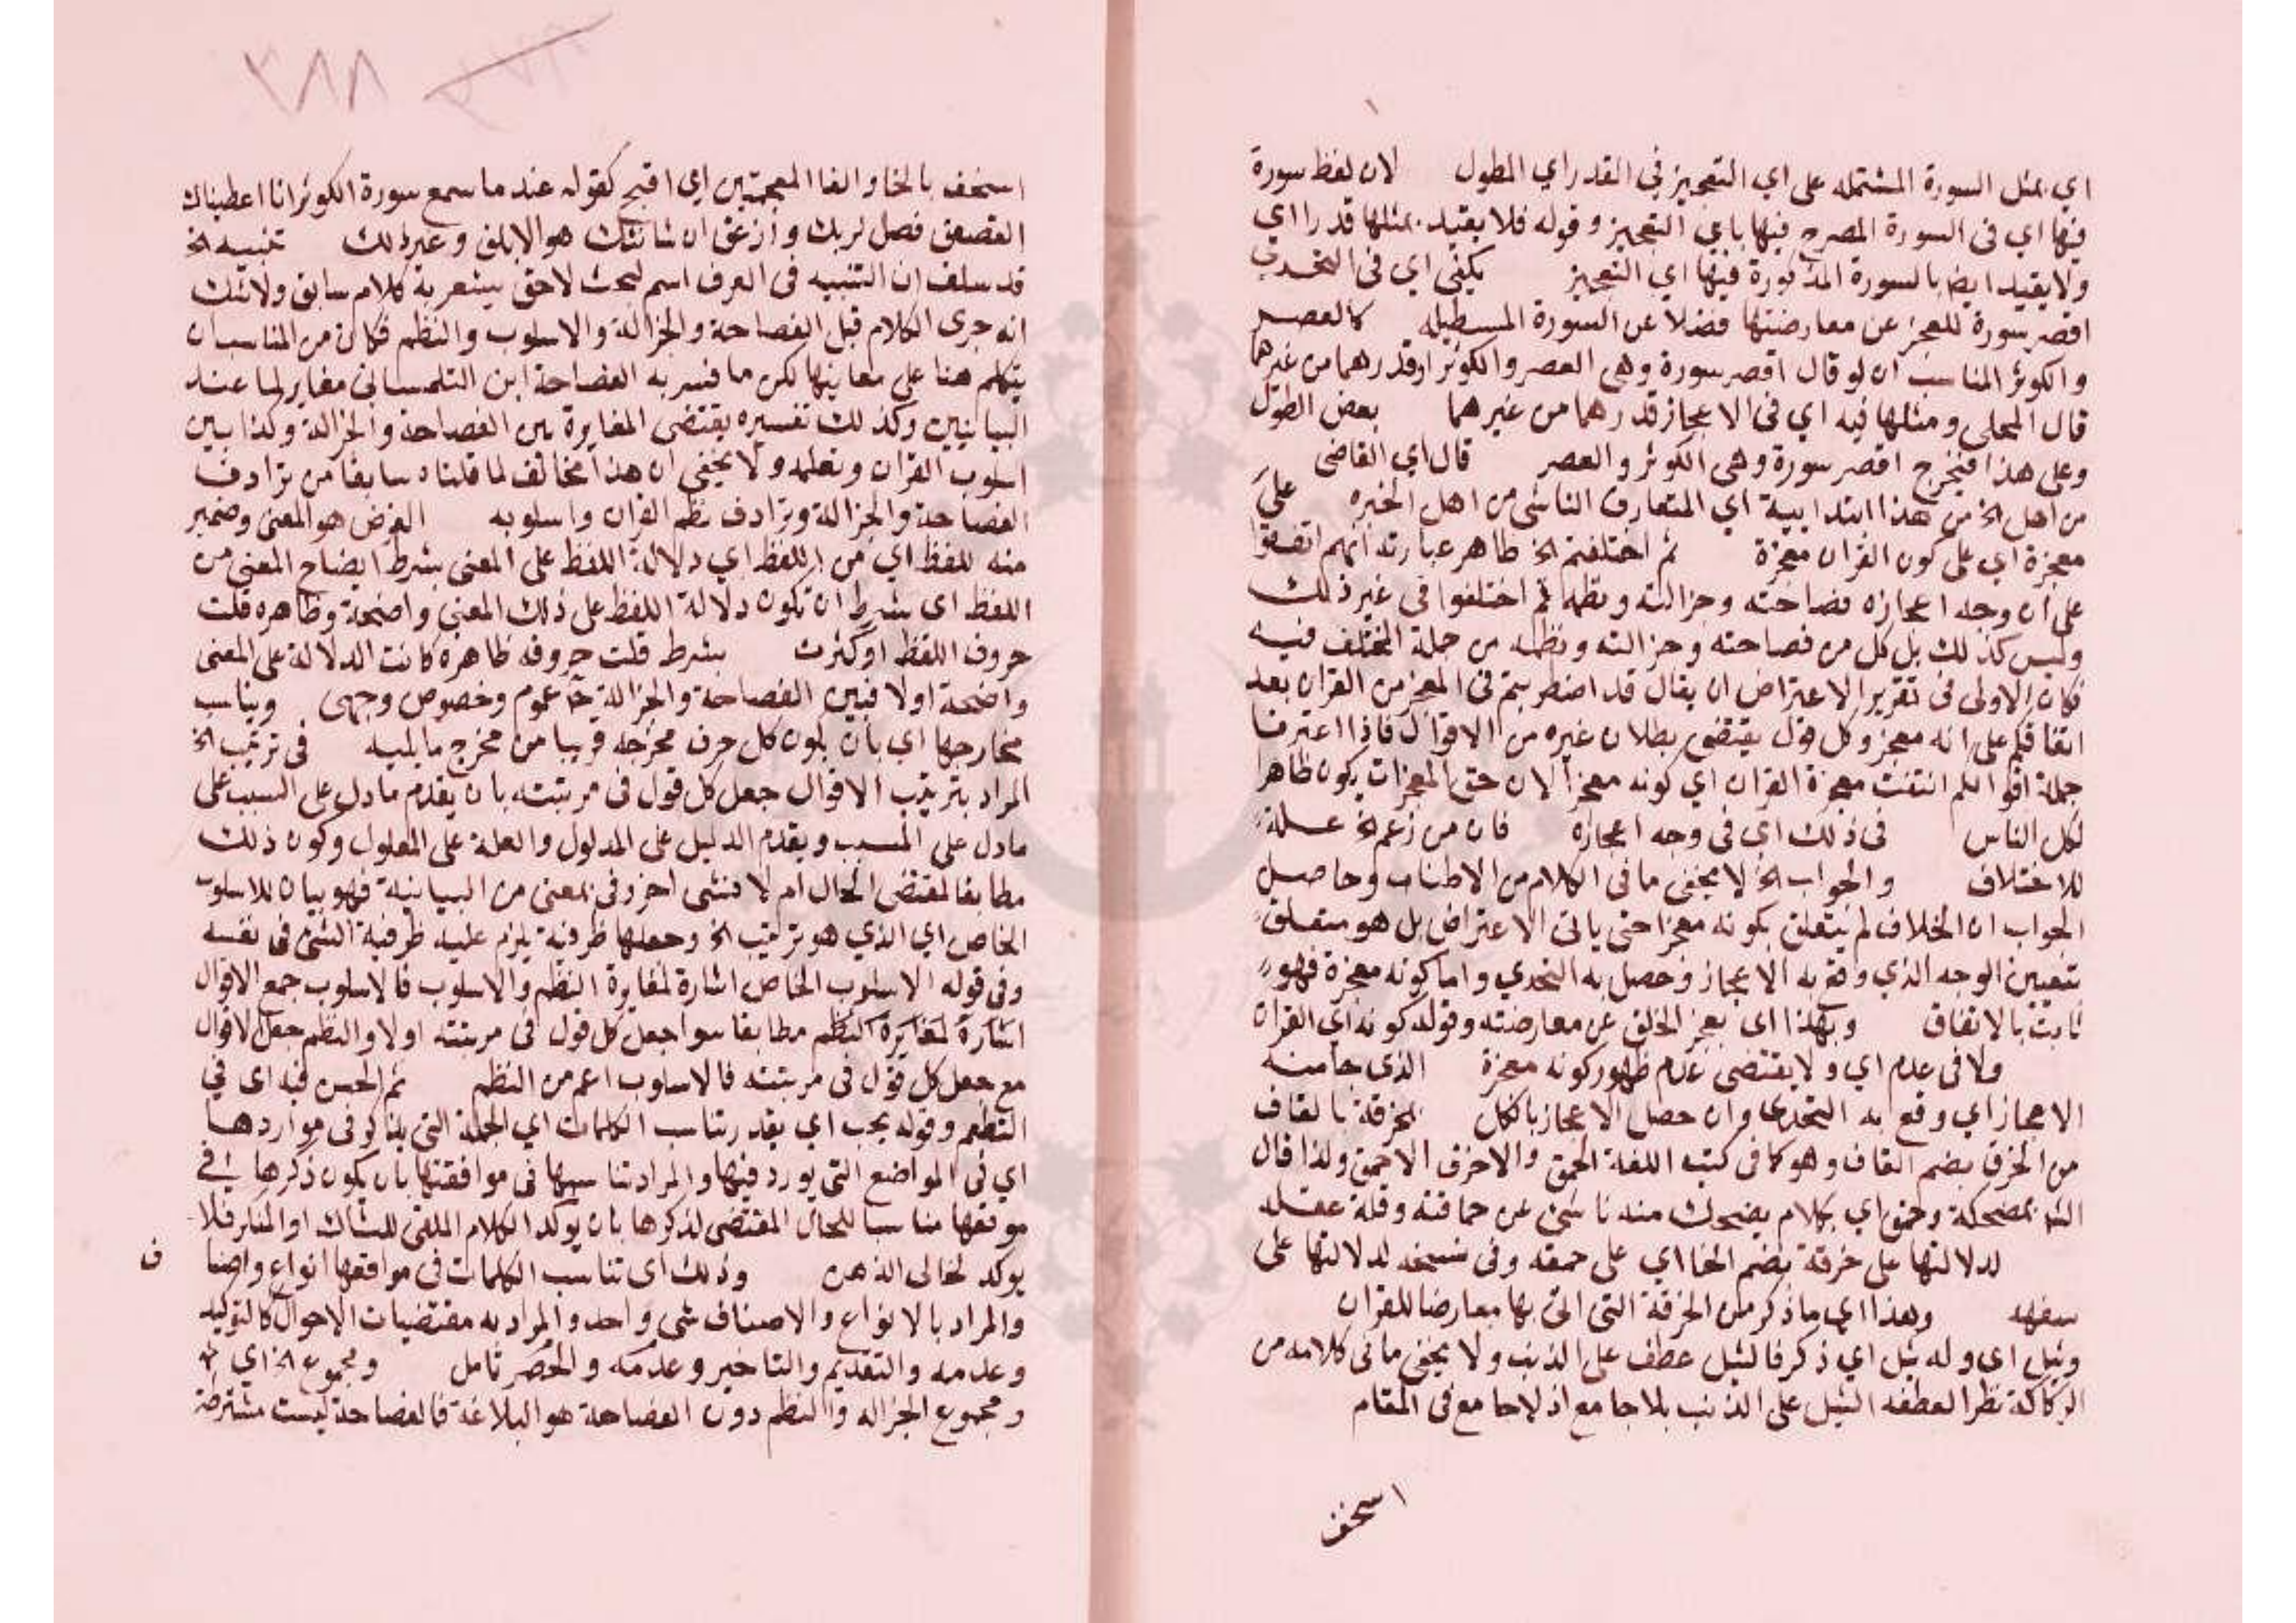 اي بمثل السورة المشتملة على اي التعجيز في القدر اي المطول لان لفظ سورة
فيها اي في السورة المصرح فيها باي التعجيز وقوله فلا يقيد بمثلها قدرا اي
ولا يقيد ايض بالسورة المذكورة فيها اي التعجيز يكفي اي في التحدي
اقصر سورة للعجز عن معارضتها فضلا عن السورة المستطيله كالعصر
والكوثر المناسب ان لو قال اقصر سورة وهي العصر والكوثر او قدرهما من غيرهما
قال المحلي ومثلها فيه اي في الاعجاز قدرهما من غيرهما بعض الطول
وعلى هذا فيخرج اقصر سورة وهي الكوثر والعصر قال اي القاضي
من اهل الخ من هذا ابتدايية اي المتعارف الناشي من اهل الخبره على
معجزة اي على كون القران معجزة ثم اختلفتم الخ ظاهر عبارته انهم اتفقوا
على ان وجه اعجازه فصاحته وجزالته ونظمه ثم اختلفوا في غير ذلك
وليس كذلك بل كل من فصاحته وجزالته ونظمه من جملة المختلف فيه
فكان الاولى في تقرير الاعتراض ان يقال قد اضطربتم في المعجز من القران بعد
اتفاقكم على انه معجز وكل قول يقتضي بطلان غيره من الاقوال فاذا اعترفنا
جملة اقوالكم انتفت معجزة القران اي كونه معجزا لان حق المعجزات يكون ظاهرا
لكل الناس في ذلك اي في وجه اعجازه فان من زعم الخ علة
للاختلاف والجواب الخ لا يخفى ما في الكلام من الاطناب وحاصل
الجواب ان الخلاف لم يتعلق بكونه معجزا حتى ياتي الاعتراض بل هو متعلق
بتعيين الوجه الذي وقع به الاعجاز وحصل به التحدي واما كونه معجزة فهو
ثابت بالاتفاق وبهذا اي بعجز الخلق عن معارضته وقوله كونه اي القران
ولا في عدم اي ولا يقتضي عدم ظهور كونه معجزة الذي جا منه
الاعجاز اي وقع به التحدي وان حصل الاعجاز بالكل الخرقة بالقاف
من الخرق بضم القاف وهو كما في كتب اللغة الحمق والاخرق الاحمق ولذا قال
الش بمضحكة وحمق اي بكلام يضحك منه ناشي عن حماقته وقلة عقله
لدلالتها على خرقة بضم الخا اي على حمقه وفي نسخه لدلالتها على
سفهه وهذا اي ما ذكر من الخرقة التي اتى بها معارضا للقران
وثيل اي وله ثيل اي ذكر فالثيل عطف على الذنب ولا يخفى ما في كلامه من
الركاكة نظرا لعطفه الثيل على الذنب بلا جامع اذ لا جامع في المقام
اسخف
٣٨٨
اسخف بالخا والفا المعجمتين اي اقبح كقوله عند ما سمع سورة الكوثر انا اعطيناك
فصل لربك وازعق ان شانئك هو الابلق وغير ذلك تنبيه الخ
قد سلف ان التنبيه في العرف اسم لبحث لاحق يشعر به كلام سابق ولا شك
انه جرى الكلام قبل الفصاحة والجزالة والاسلوب والنظم فكان من المناسب ان
يتكلم هنا على معانيها لكن ما فسر به الفصاحة ابن التلمساني مغاير لما عند
البيانيين وكذلك تفسيره يقتضي المغايرة بين الفصاحة والجزالة وكذا بين
اسلوب القران ونظمه ولا يخفى ان هذا مخالف لما قلناه سابقا من ترادف
الفصاحة والجزالة وترادف نظم القران واسلوبه الغرض هو المعنى وضمير
منه للفظ اي من اللفظ اي دلالة اللفظ على المعنى بشرط ايضاح المعنى من
اللفظ اي بشرط ان تكون دلالة اللفظ على ذلك المعنى واضحة وظاهره قلت
حروف اللفظ او كثرت بشرط قلت حروفه ظاهره كانت الدلالة على المعنى
واضحة او لا فبين الفصاحة والجزالة عموم وخصوص وجهي ويناسب
مخارجها اي بان يكون كل حرف مخرجه قريبا من مخرج ما يليه في ترتيب الخ
المراد بترتيب الاقوال جعل كل قول في مرتبته بان يقدم ما دل على السبب على
ما دل على المسبب ويقدم الدليل على المدلول والعلة على المعلول وكون ذلك
مطابقا لمقتضى الحال ام لا فشي اخر وفي بمعنى من البيانية فهو بيان للاسلوب
الخاص اي الذي هو ترتيب الخ وجعلها ظرفية يلزم عليه ظرفية الشئ في نفسه
وفي قوله الاسلوب الخاص اشارة لمغايرة النظم والاسلوب فالاسلوب جمع الاقوال
اشارة لمغايرة النظم مطابقا سوا جعل كل قول في مرتبته اولا والنظم جعل الاقوال
مع جعل كل قول في مرتبته فالاسلوب اعم من النظم ثم الحسن فيه اي في
النظم وقوله يجب اي بقدر تناسب الكلمات اي الجملة التي في مواردها
اي في المواضع التي يورد فيها والمراد تناسبها في موافقتها بان يكون ذكرها في
موقعها مناسبا للحال المقتضي لذكرها بان يوكد الكلام الملقى للشاك او المنكر فلا
يوكد لخالي الذهن وذلك اي تناسب الكلمات في مواقعها انواع واصنا ف
والمراد بالانواع والاصناف شي واحد والمراد به مقتضيات الاحوال كالتوكيد
وعدمه والتقديم والتاخير وعدمه والحصر تامل ومجموع الخ اي
ومجموع الجزاله والنظم دون الفصاحة هو البلاغة فالفصاحة ليست مشترطة